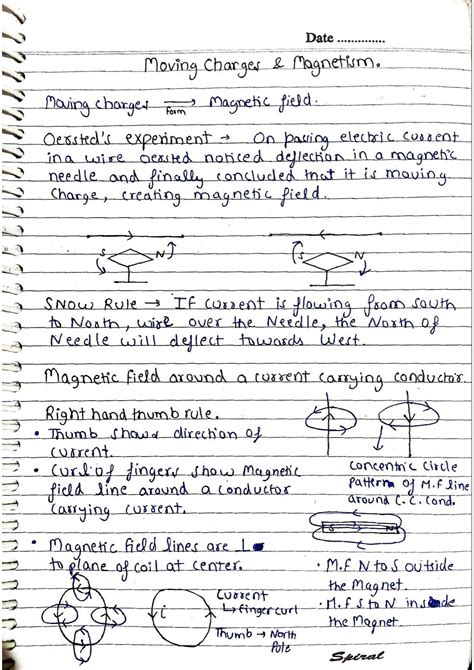 Date ..............
Moving Charges & Magnetism.
Moving charges ⟶ Magnetic field.
Form
Oersted's experiment → On passing electric current
in a wire oersted noticed deflection in a magnetic
needle and finally concluded that it is moving
Charge, creating magnetic field.
S N S N
SNOW RULE → If current is flowing from south
to North, wire over the Needle, the North of
Needle will deflect towards West.
Magnetic field around a current carrying conductor
Right hand thumb rule.
• Thumb shows direction of
current.
• Curl of fingers show Magnetic
field line around a conductor
carrying current.
Concentric Circle
pattern of M.F line
around C.C. Cond.
S N
• Magnetic field lines are ⊥
to plane of coil at center.
• M.F N to S outside
the Magnet.
• M.F S to N inside
the Magnet
i
Current
↳ finger curl
Thumb → North
Pole
Spiral